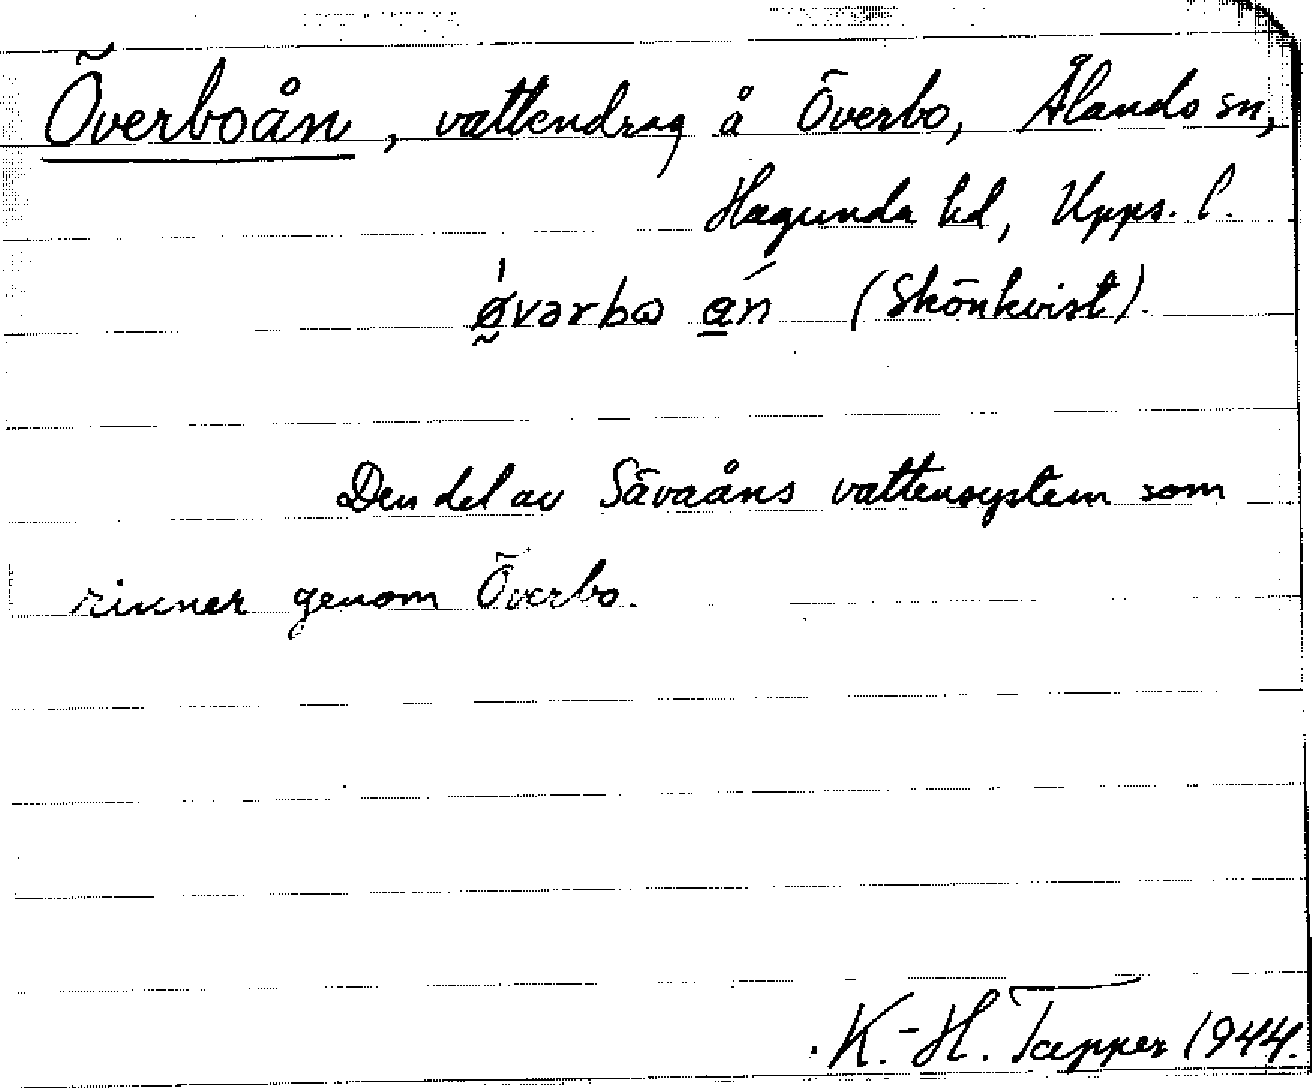 Överboån, vattendrag å Överbo, Ålands sn,
Hagunda hd, Upps. l.
ø̰̍vərbω a̱ń (Skönkvist).
Den del av Sävaåns vattensystem som
rinner genom Överbo.
K.-H. Tapper 1944.